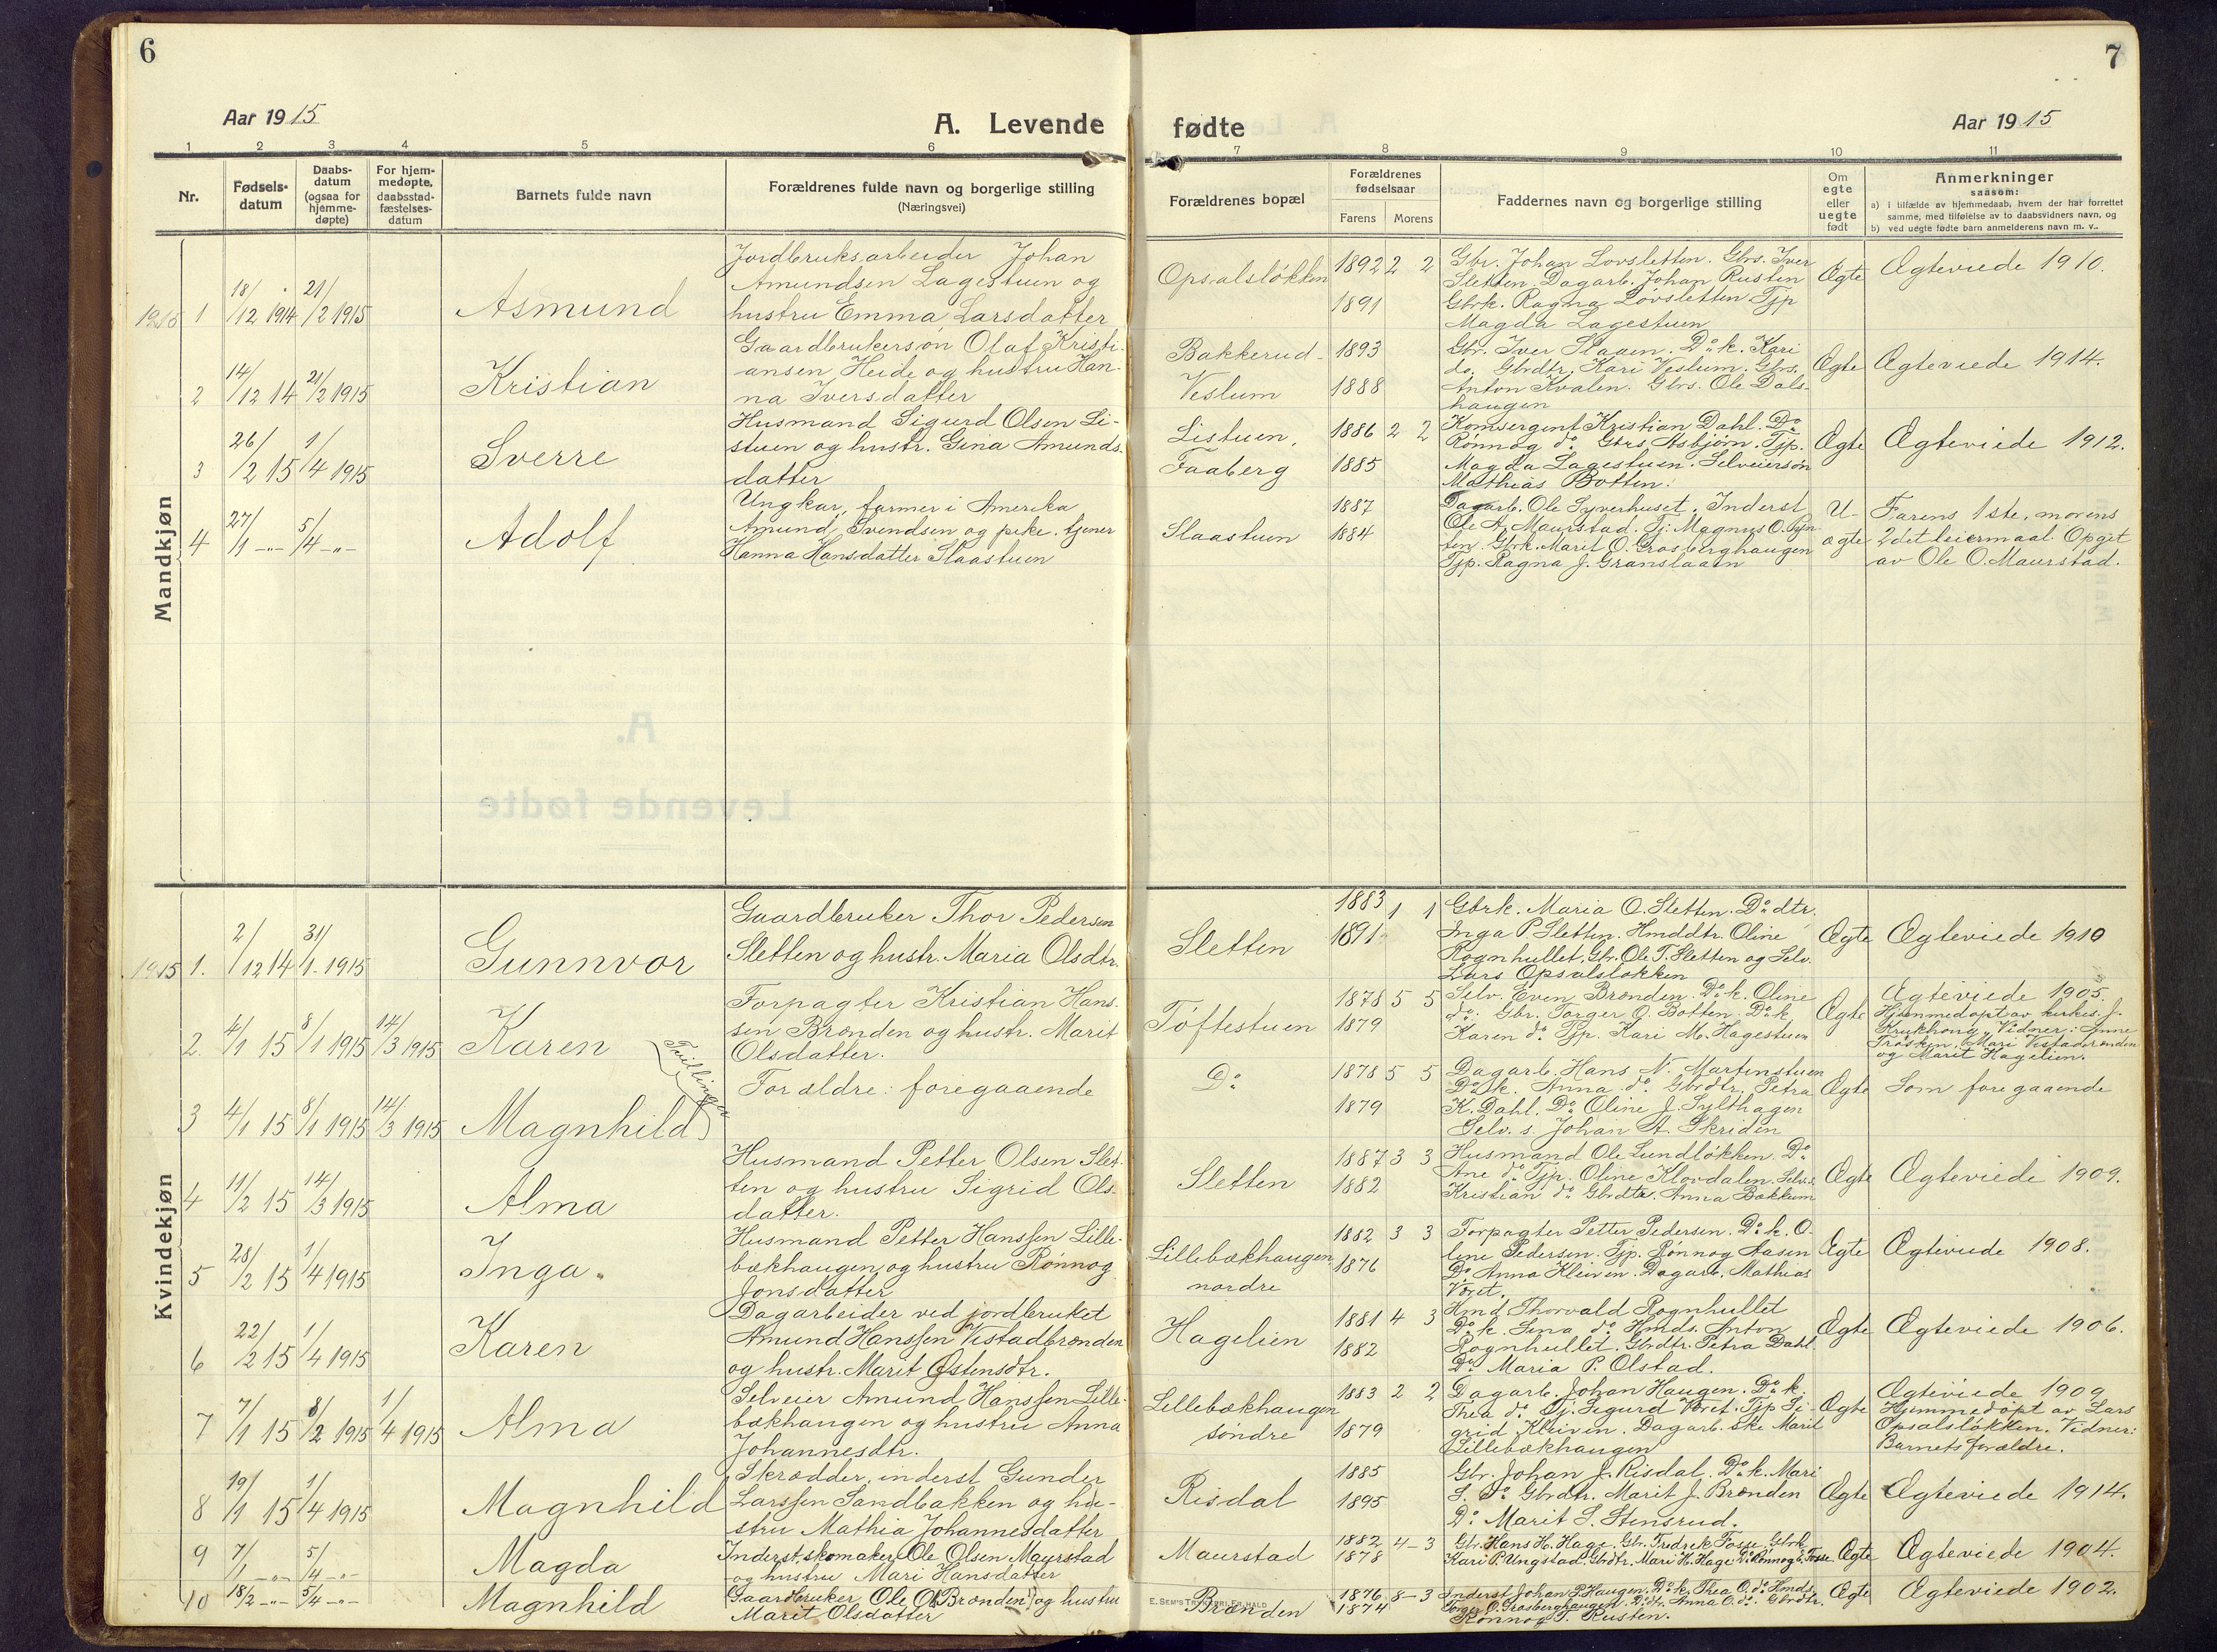 6
Aar 1915
A. Levende
1 2 3 4 5 6
Nr.
Fødsels-
datum
Daabs-
datum
(ogsaa for
hjemme-
døpte)
For hjem-
medøpte,
daabsstad-
fæstelses-
datum
Barnets fulde navn
Forældrenes fulde navn og borgerlige stilling
(Næringsvei)
Mandkjøn
1915 1 18/12 1914 21/2 1915 Asmund
Jordbruksarbeider Johan
Amundsen Lagestuen og
hustru Emma Larsdatter
2 14/12 14 21/2 1915 Kristian
Gaardbrukersøn Olaf Kristi-
ansen Heide og hustru Han-
na Iversdatter
3 26/2 15 1/4 1915 Sverre
Husmand Sigurd Olsen Li-
stuen og hustr. Gina Amunds-
datter
4 27/1 -„- 5/4 -„- Adolf
Ungkar, farmer i Amerika
Amund Svendsen og pike, tjener
Hanna Hansdatter Slaastuen
Kvindekjøn
1915 1. 2/12 14 31/1 1915 Gunnvor
Gaardbruker Thor Pedersen
Sletten og hustr. Maria Olsdtr.
2. 4/1 15 8/1 1915 14/3 1915 Karen
Tvillinger
Forpagter Kristian Hans-
sen Brænden og hustr. Marit
Olsdatter.
3 4/1 15 8/1 1915 14/3 1915 Magnhild
Forældre: foregaaende
4 11/2 15 14/3 1915 Alma
Husmand Petter Olsen Slet-
ten og hustru Sigrid Ols-
datter.
5 28/2 15 1/4 1915 Inga
Husmand Petter Hanssen Lille-
bækhaugen og hustru Rønnog
Jonsdatter
6 22/2 15 1/4 1915 Karen
Dagarbeider ved jordbruket
Amund Hanssen Vistadbrænden
og hustr. Marit Østensdtr.
7 7/1 15 8/2 1915 1/4 1915 Alma
Selveier Amund Hanssen Lille-
bækhaugen og hustru Anna
Johannesdtr.
8 19/1 15 1/4 1915 Magnhild
Skrædder, inderst Gunder
Larssen Sandbakken og hu-
stru Mathia Johannesdatter
9 7/1 -„- 5/4 -„- Magda
Inderst, skomaker Ole Olsen Maurstad
og hustru Mari Hansdatter
10 18/2 -„- 5/4 -„- Magnhild
Gaardbruker Ole O. Brænden og hustru
Marit Olsdatter
7
fødte
Aar 1915
7 8 9 10 11
Forældrenes bopæl
Forældrenes
fødselsaar
Farens Morens
Faddernes navn og borgerlige stilling
Om
egte
eller
uegte
født
Anmerkninger
saasom:
a) i tilfælde av hjemmedaab, hvem der har forrettet
samme, med tilføielse av to daabsvidners navn, og
b) ved uegte fødte barn anmelderens navn m. v..
Opsalsløkken 1892 2 2
1891
Gbr. Johan Lovsletten. Gbrs. Iver
Sletten. Dagarb. Johan Rusten
Gbrk. Ragna Lovsletten Tjp
Magda Lagestuen
Ægte Ægteviede 1910.
Bakkerud-
Veslum
1893
1888
Gbr. Iver Slaaen. Do k. Kari
do. Gbrdtr. Kari Veslum. Gbrs.
Anton Kvalen. Gbrs. Ole Dals-
haugen
Ægte Ægteviede 1914.
Listuen,
Faaberg
1886 2 2
1885
Komsergent Kristian Dahl. Do
Rønnog do Gbrs Asbjørn. Tjp.
Magda Lagestuen. Selveiersøn
Mathias Botten.
Ægte Ægteviede 1912.
Slaastuen
1887
1884
Dagarb. Ole Syverhuset. Inderst
Ole A. Maurstad. Tj. Magnus O.
ten. Gbrk. Marit O. Grasberghaugen
Tjp. Ragna J. Granslaaen
U-
ægte
Farens 1ste, morens
2det leiermaal. Opget
av Ole O. Maurstad.
Sletten
1883 1 1
1891
Gbrk. Maria O. Sletten. Do dtr.
Inga P. Sletten. Hmddtr. Oline
Rognhullet. Gbr. Ole T. Sletten og Selv.
Lars Opsalsløkken
Ægte Ægteviede 1910
Tøftestuen
1878 5 5
1879
Selv. Even Brænden. Do k. Oline
do. Gbr. Torger O. Botten. Do k
Karen do Tjp. Kari M. Hagestuen
Ægte
Ægteviede 1905.
Hjemmedøpt av kirkes.
Krukhong. Vidner: Anne
Træsken, Mari Vistadbrænden
og Marit Hagelien.
Do
1878 5 5
1879
Dagarb. Hans N. Martinstuen
Do k. Anna do Gbrdtr. Petra
K. Dahl. Do Oline J. Sylthagen
Selv. s. Johan A. Skriden
Ægte Som foregaaende
Sletten
1887 3 3
1882
Husmand Ole Lundløkken. Do
Ane do Tjp. Oline Klovdalen. Selvs.
Kristian do Gbrdtr. Anna Bakkum
Ægte Ægteviede 1909.
Lillebækhaugen
nordre
1882 3 3
1876
Forpagter Petter Pedersen. Do k. O-
line Pedersen. Tjp. Rønnog Aasen
Do Anna Kleiven. Dagarb. Mathias
Ægte Ægteviede 1908.
Hagelien
1881 4 3
1882
Hmd Thorvald Rognhullet
Do k. Sina do Hmds. Anton
Rognhullet. Gbrdtr. Petra Dahl
Do Maria P. Olstad.
Ægte Ægteviede 1906.
Lillebækhaugen
søndre
1883 2 2
1879
Dagarb. Johan Haugen. Do k.
Thea do Tj. Sigurd Tjp Si-
grid Kleiven. Dagarb. ske Marit
Lillebækhaugen
Ægte
Ægteviede 1909
Hjemmedøpt av Lars
Opsalsløkken. Vidner:
Barnets forældre.
Risdal
1885
1895
Gbr. Johan J. Risdal. Do k. Mari
S. do Gbrdtr. Marit J. Brænden
Do Marit S. Stensrud.
Ægte Ægteviede 1914.
Maurstad
1882 4-3
1878
Gbr. Hans H. Hage. Gbr. Fredrek Fosse. Gbrk.
Kari P. Ungstad. Gbrdtr. Mari H. Hage. Do Rønnog E. Fosse.
Ægte Ægteviede 1904.
Brænden
1876 8-3
1874
Inderst Johan P. Haugen. Do k. Thea O. do Hmds.
Torger O. Grasberghaugen. Do dtr. Anna O. do. Gbrdtr.
Rønnog T. Rusten.
Ægte Ægteviede 1902.